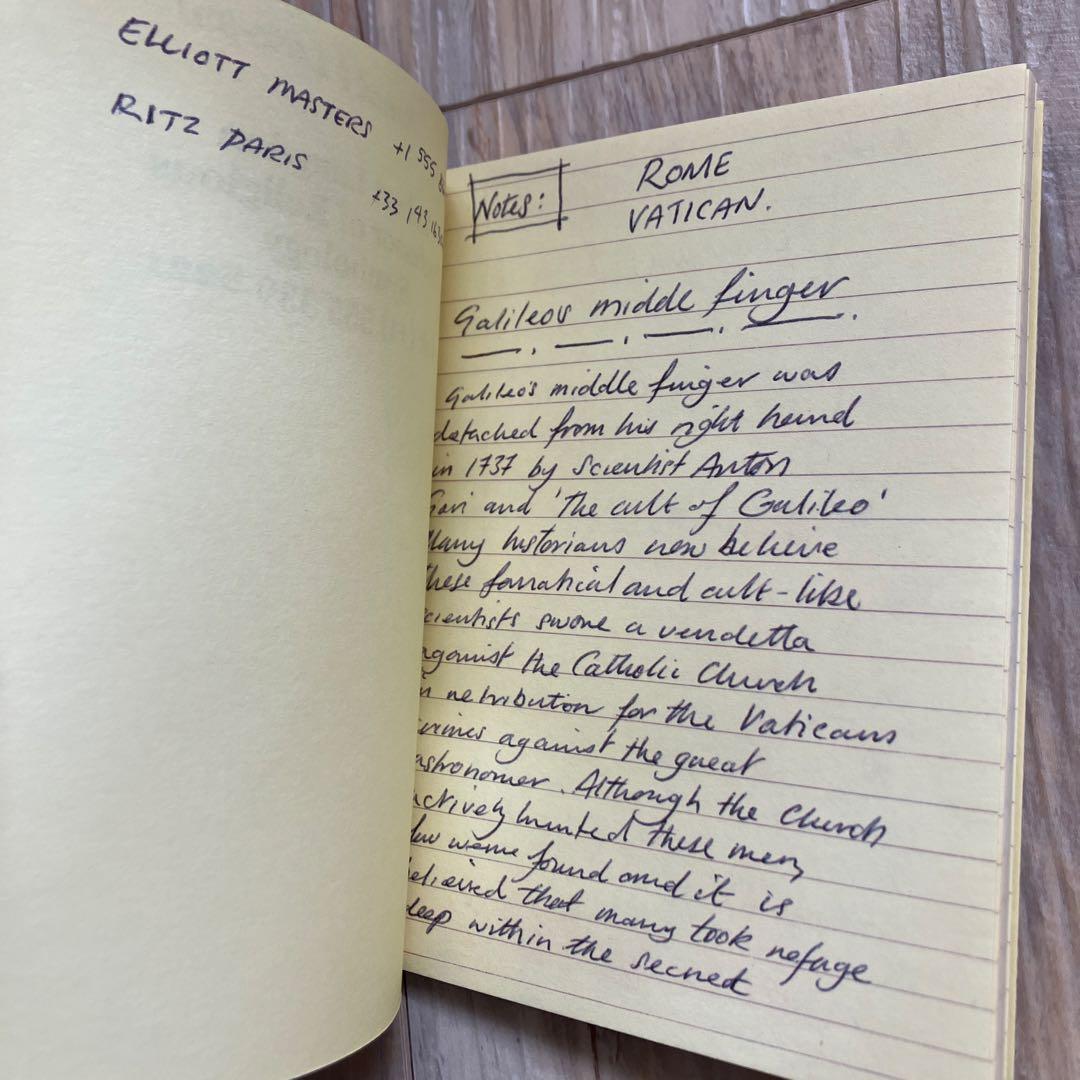 ELLIOTT MASTERS +1 555
RITZ PARIS
+33 143 163
Notes:
ROME
VATICAN.
Galileos middle finger
Galileo's middle finger was
detached from his right hand
in 1737 by scientist Anton
Gori and 'the cult of Galileo'
Many historians now believe
these fanatical and cult-like
scientists swore a vendetta
against the Catholic Church
in retribution for the Vaticans
crimes against the great
astronomer. Although the Church
actively hunted these men,
few were found and it is
believed that many took refuge
deep within the secret